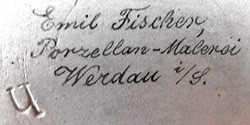 Emil Fischer,
Porzellan-Malerei
Werdau i/S.